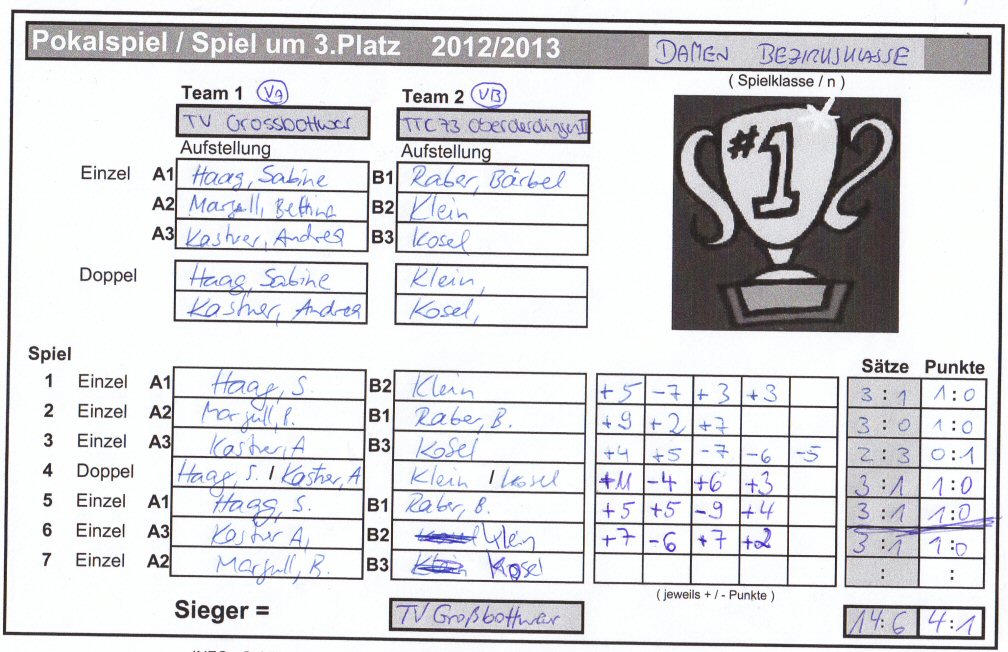 Pokalspiel / Spiel um 3.Platz 2012/2013 DAMEN BEZIRKSKLASSE
( Spielklasse / n )
Team 1 VA Team 2 VB
TV Grossbottwar TTC 73 Oberderdingen II
Aufstellung Aufstellung
#1
Einzel A1 Haag, Sabine B1 Raber, Bärbel
A2 Margull, Bettina B2 Klein
A3 Kastner, Andrea B3 Kosel
Doppel Haag, Sabine Klein,
Kastner, Andrea Kosel,
Spiel Sätze Punkte
1 Einzel A1 Haag, S. B2 Klein +5 -7 +3 +3 3:1 1:0
2 Einzel A2 Margull, B. B1 Raber, B. +9 +2 +7 3:0 1:0
3 Einzel A3 Kastner, A B3 Kosel +4 +5 -7 -6 -5 2:3 0:1
4 Doppel Haag, S. / Kastner, A Klein / Kosel +11 -4 +6 +3 3:1 1:0
5 Einzel A1 Haag, S. B1 Raber, B. +5 +5 -9 +4 3:1 1:0
6 Einzel A3 Kastner A, B2 Klein +7 -6 +7 +2 3:1 1:0
7 Einzel A2 Margull, B. B3 Kosel : :
( jeweils + / - Punkte )
Sieger = TV Großbottwar 14:6 4:1